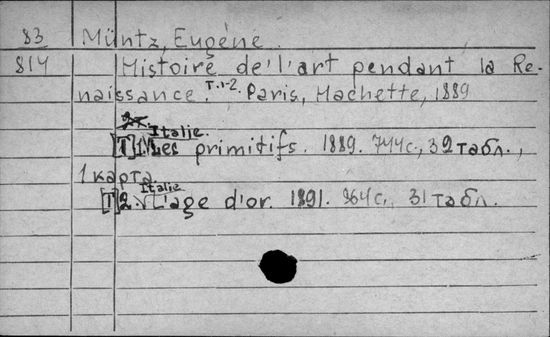 83 Müntz, Eugène.
814 Histoire de l'art pendant la Re-
naissance. T.1-2. Paris, Hachette, 1889
Italie.
[T] 1. Les primitifs. 1889. 744 с., 32 табл.,
1 карта.
Italie
[T] 2. L'age d'or. 1891. 864 с., 31 табл.